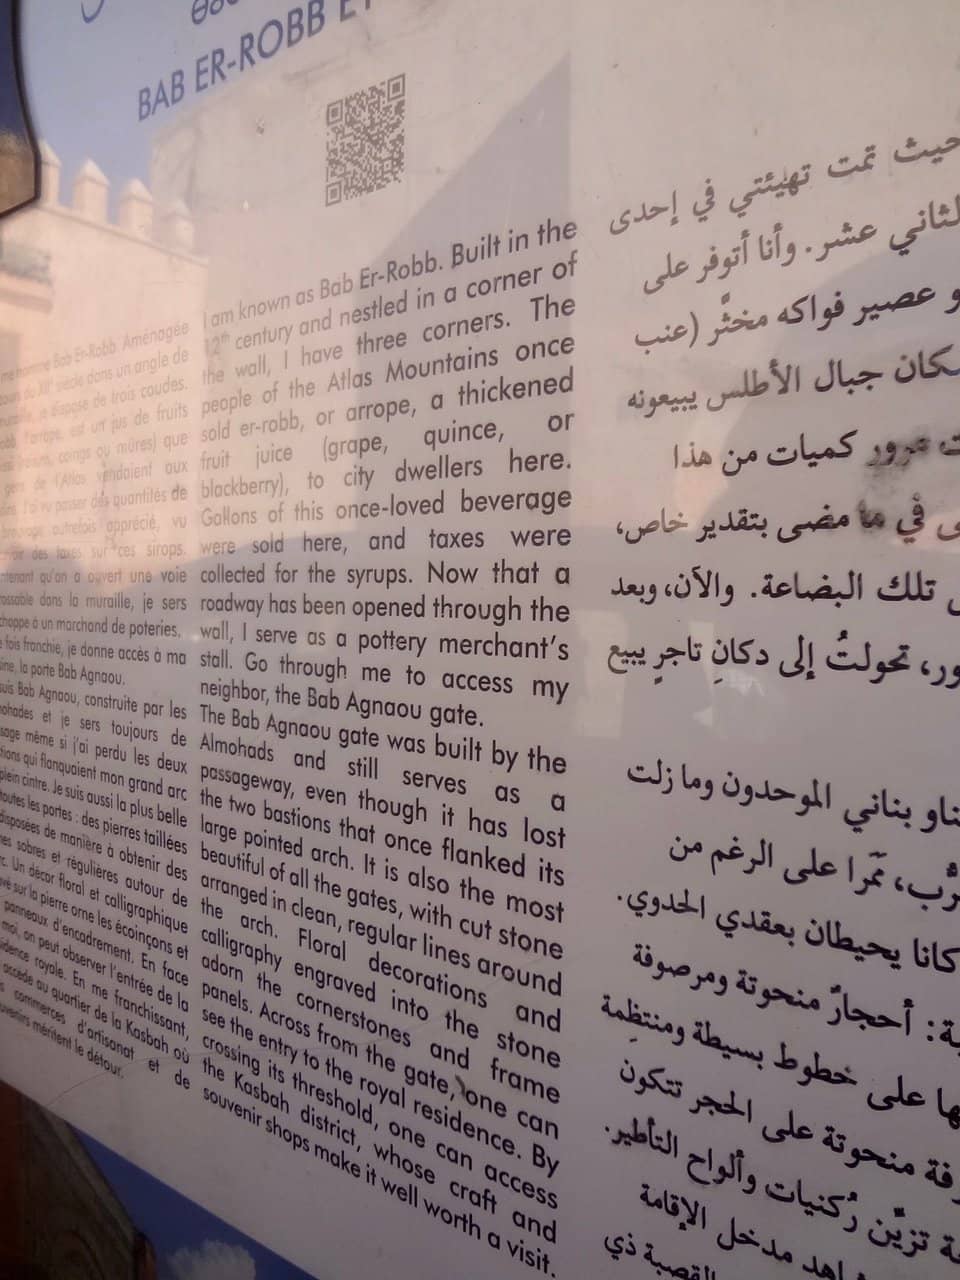 BAB ER-ROBB
me nomme Bab Er-Robb. Aménagée
siècle dans un angle de
je dispose de trois coudes.
l'arrope, est un jus de fruits
coings ou mûres) que
gens de l'Atlas vendaient aux
J'ai vu passer des quantités de
breuvage autrefois apprécié, vu
des taxes sur ces sirops.
qu'on a ouvert une voie
dans la muraille, je sers
d'échoppe à un marchand de poteries.
fois franchie, je donne accès à ma
la porte Bab Agnaou.
suis Bab Agnaou, construite par les
et je sers toujours de
même si j'ai perdu les deux
qui flanquaient mon grand arc
plein cintre. Je suis aussi la plus belle
toutes les portes : des pierres taillées
disposées de manière à obtenir des
sobres et régulières autour de
Un décor floral et calligraphique
sur la pierre orne les écoinçons et
panneaux d'encadrement. En face
moi, on peut observer l'entrée de la
royale. En me franchissant,
accède au quartier de la Kasbah où
commerces d'artisanat et de
souvenirs méritent le détour.
I am known as Bab Er-Robb. Built in the
12th century and nestled in a corner of
the wall, I have three corners. The
people of the Atlas Mountains once
sold er-robb, or arrope, a thickened
fruit juice (grape, quince, or
blackberry), to city dwellers here.
Gallons of this once-loved beverage
were sold here, and taxes were
collected for the syrups. Now that a
roadway has been opened through the
wall, I serve as a pottery merchant's
stall. Go through me to access my
neighbor, the Bab Agnaou gate.
The Bab Agnaou gate was built by the
Almohads and still serves as a
passageway, even though it has lost
the two bastions that once flanked its
large pointed arch. It is also the most
beautiful of all the gates, with cut stone
arranged in clean, regular lines around
the arch. Floral decorations and
calligraphy engraved into the stone
adorn the cornerstones and frame
panels. Across from the gate, one can
see the entry to the royal residence. By
crossing its threshold, one can access
the Kasbah district, whose craft and
souvenir shops make it well worth a visit.
حيث تمت تهيئتي في إحدى
الثاني عشر. وأنا أتوفر على
عصير فواكه مخثَّر (عنب
سكان جبال الأطلس يبيعونه
مرور كميات من هذا
في ما مضى بتقدير خاص،
تلك البضاعة. والآن، وبعد
تحولتُ إلى دكانِ تاجرٍ يبيع
بناني الموحدون وما زلت
مَمَرا على الرغم من
كانا يحيطان بعقدي الحدوي.
أحجارٌ منحوتة ومرصوفة
على خطوط بسيطة ومنتظِمة
منحوتة على الحجر تتكون
تزيَّن رُكنيات وألواح التأطير.
مدخل الإقامة
القصبة ذي